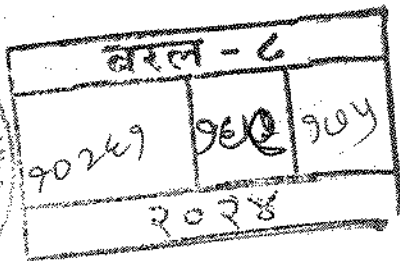 बरल - ८
१०२८१ १६९ १७५
२०२४